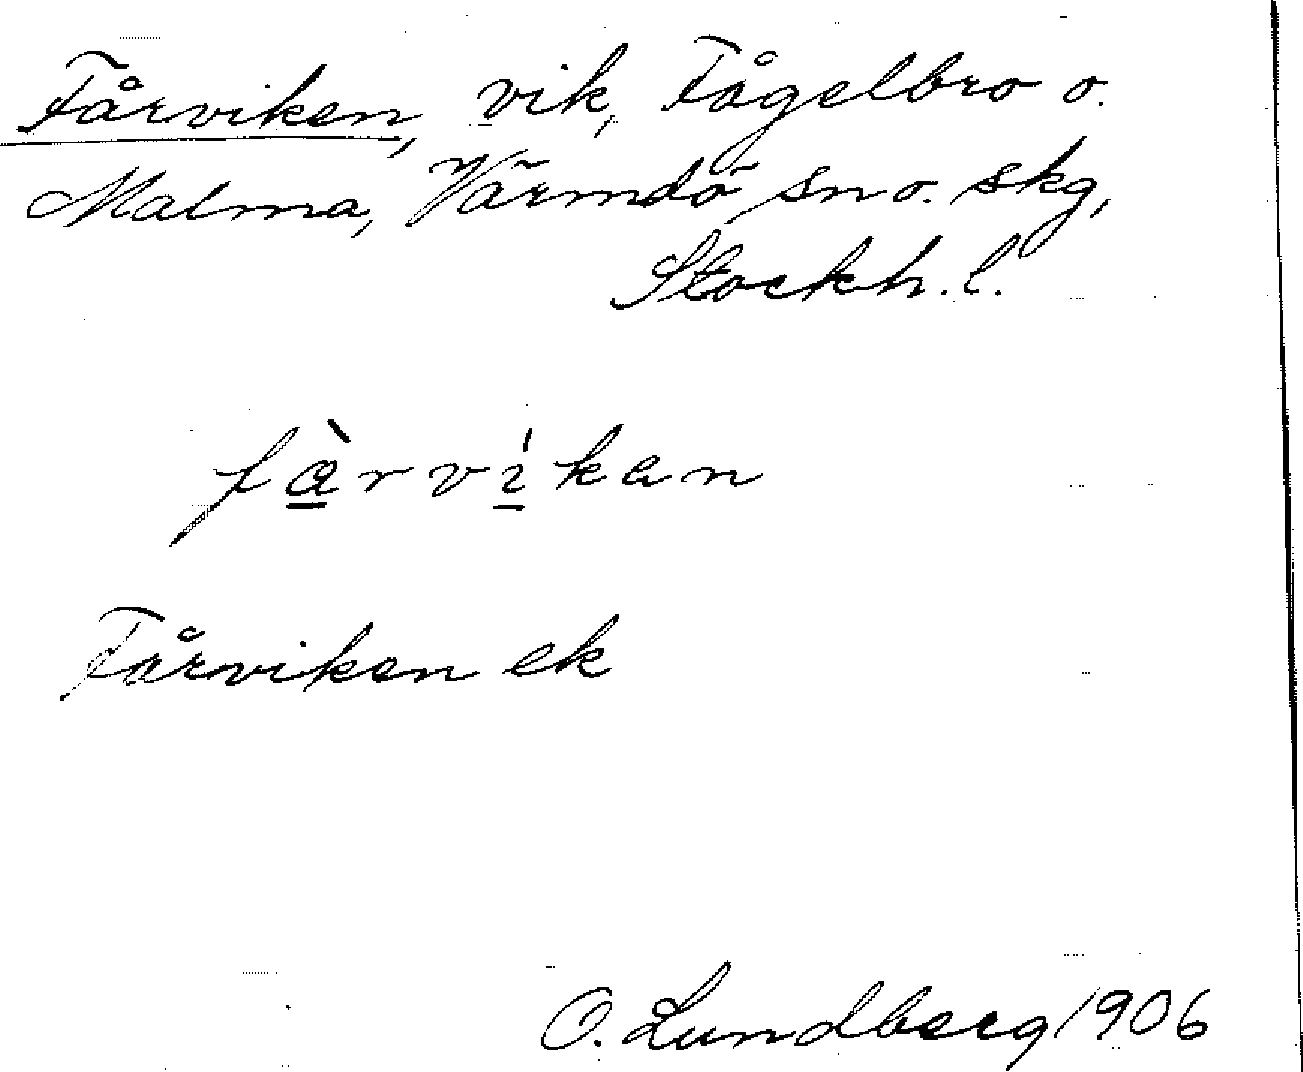 Fårviken, vik, Fågelbro o.
Malma, Värmdö sn o. skg,
Stockh. l.
fàrvíkan
Fårviken ek
O. Lundberg 1906